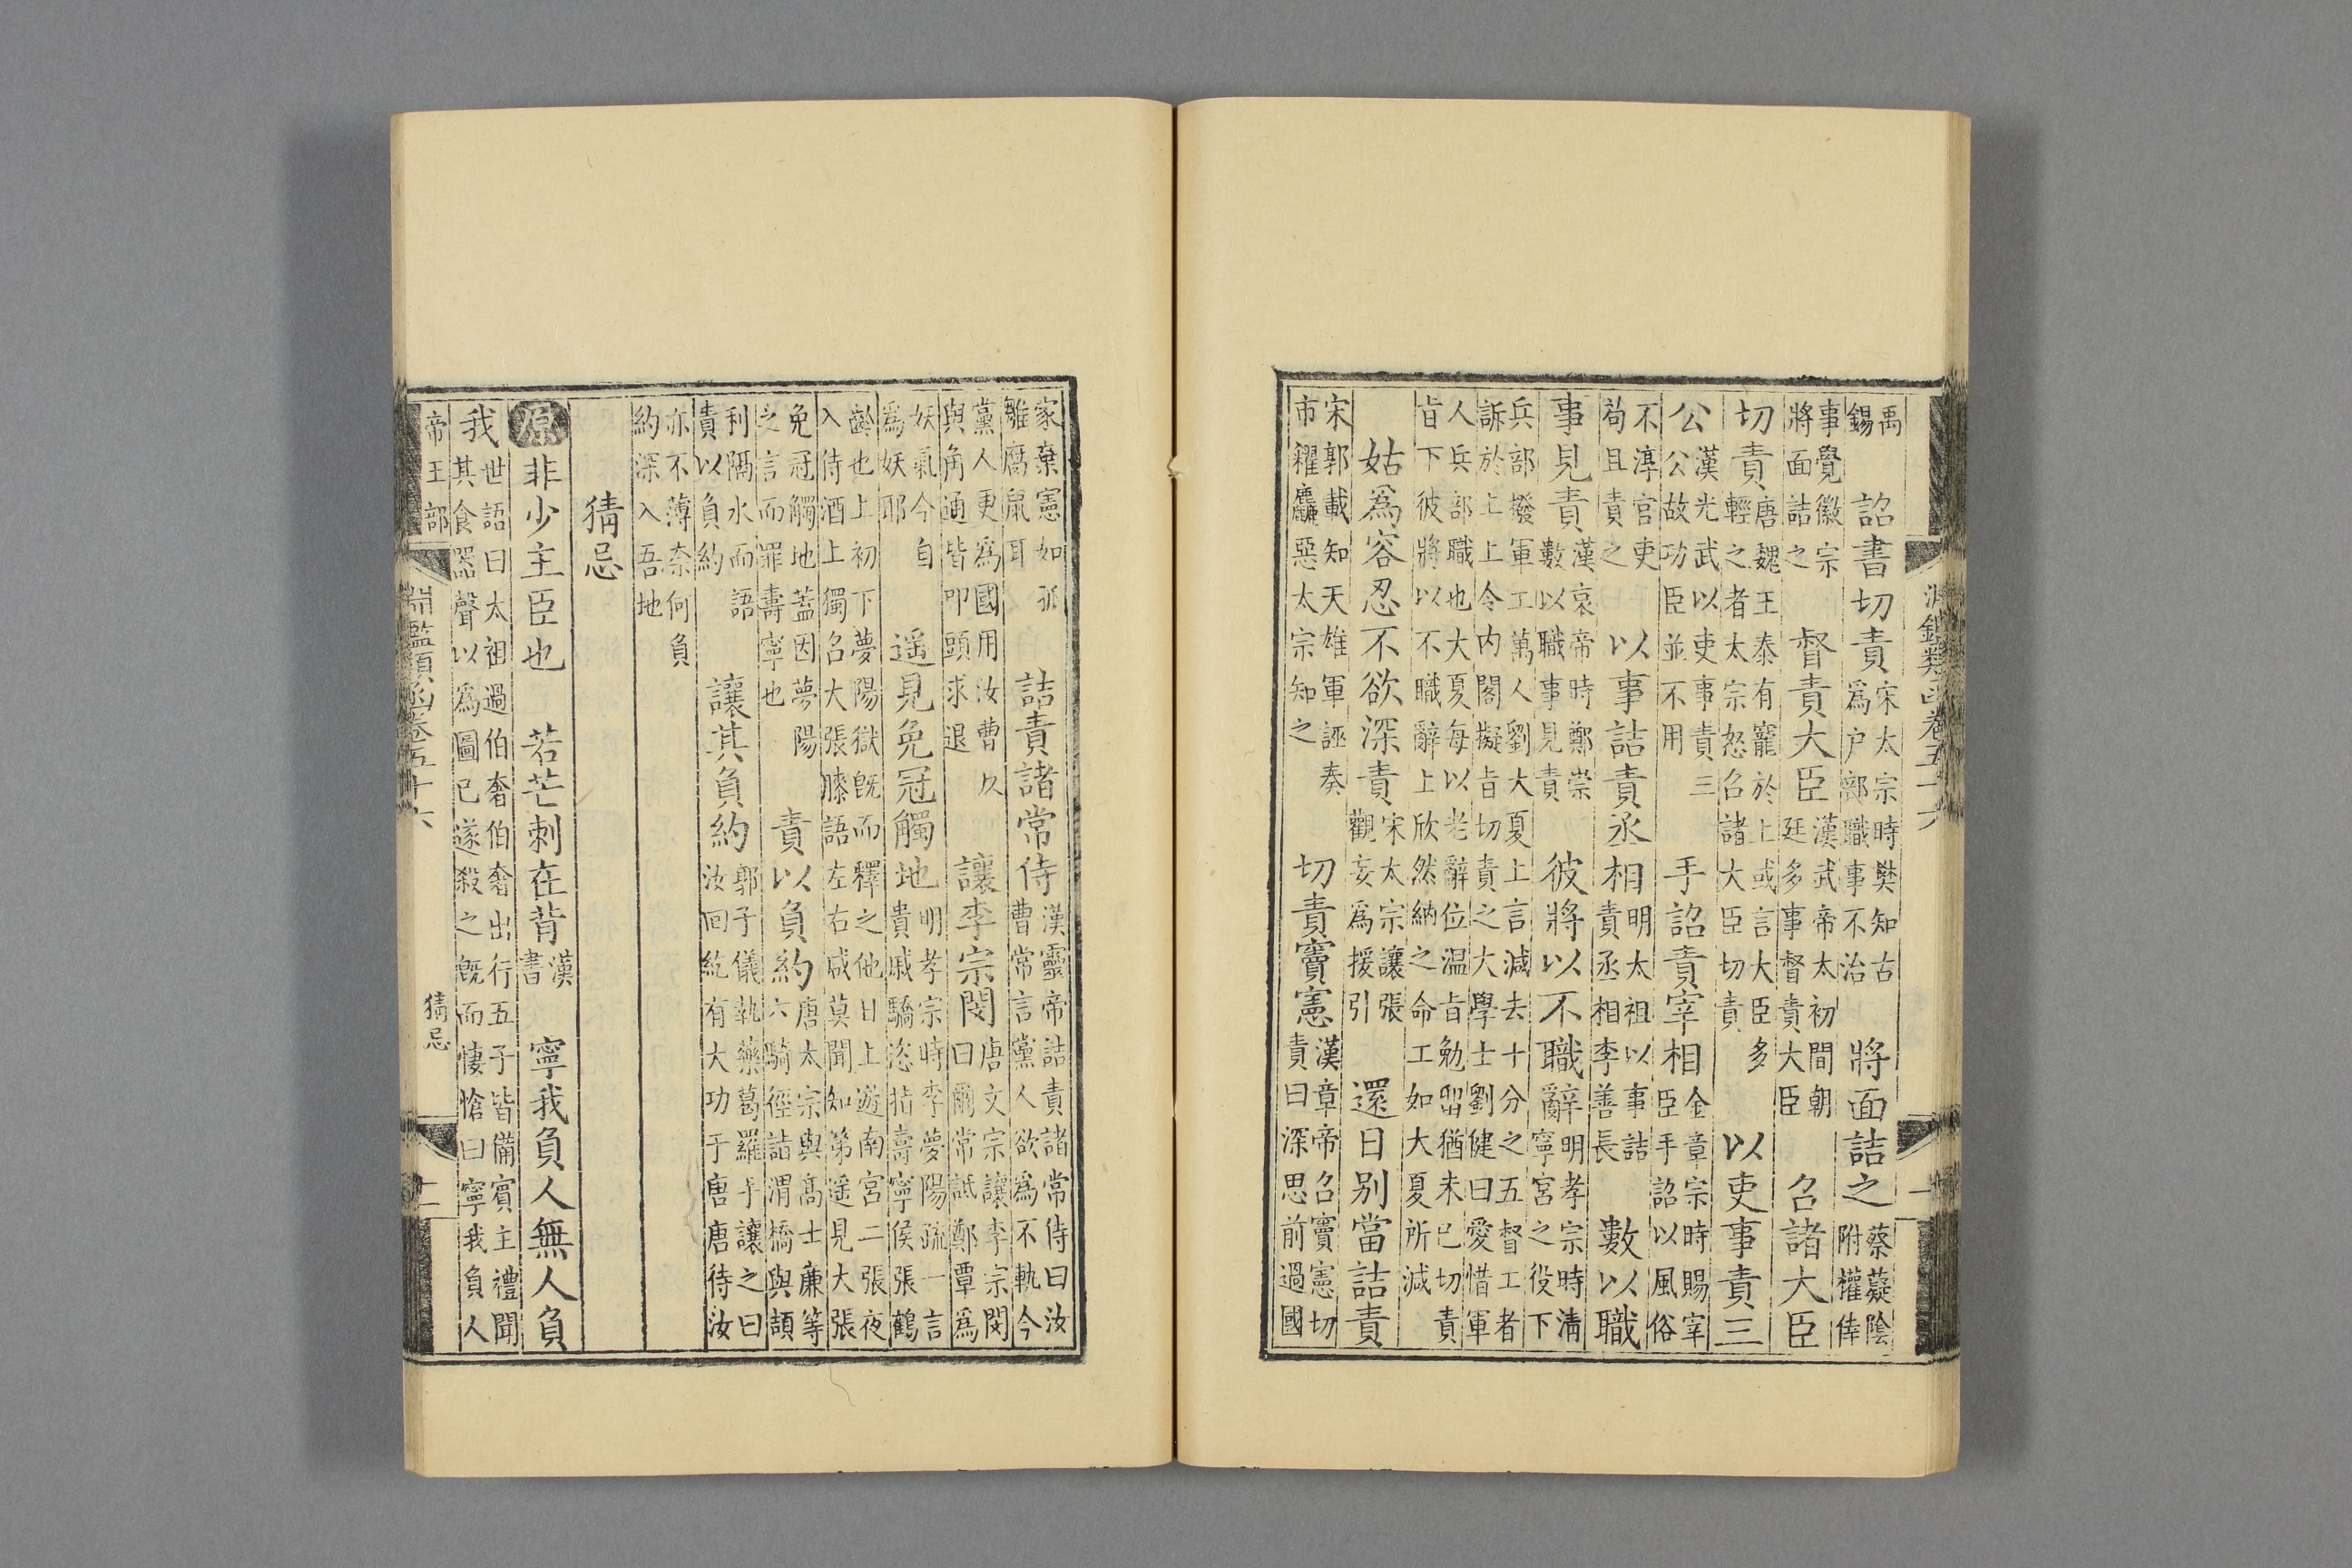 淵鑑類函卷五十六 一
禹錫 詔書切責 宋太宗時樊知古爲户部職事不治 將面詰之 蔡薿陰附權倖
事覺徽宗將面詰之 督責大臣 漢武帝太初間朝廷多事督責大臣 召諸大臣
切責 唐魏王泰有寵於上或言大臣多輕之者太宗怒召諸大臣切責 以吏事責三
公 漢光武以吏事責三公故功臣並不用 手詔責宰相 金章宗時賜宰臣手詔以風俗
不淳官吏苟且責之 以事詰責丞相 明太祖以事詰責丞相李善長 數以職
事見責 漢哀帝時鄭崇數以職事見責 彼將以不職辭 明孝宗時清寧宮之役下
兵部撥軍工萬人劉大夏上言減去十分之五督工者訴於上上令内閣擬旨切責之大學士劉健曰愛惜軍
人兵部職也大夏每以老辭位温旨勉留猶未已切責旨下彼將以不職辭上欣然納之命工如大夏所減
姑爲容忍不欲深責 宋太宗讓張觀妄爲援引 還日別當詰責
宋郭載知天雄軍誣奏市糴麤惡太宗知之 切責竇憲 漢章帝召竇憲切責曰深思前過國
家棄憲如孤雛腐鼠耳 詰責諸常侍 漢靈帝詰責諸常侍曰汝曹常言黨人欲爲不軌今
黨人更爲國用汝曹久與角通皆叩頭求退 讓李宗閔 唐文宗讓李宗閔曰爾常詆鄭覃爲
妖氣今自爲妖耶 遥見免冠觸地 明孝宗時李夢陽疏一言貴戚驕恣指壽寧侯張鶴
齡也上初下夢陽獄既而釋之他日上遊南宮二張夜入侍酒上獨召大張膝語左右咸莫聞知第遥見大張
免冠觸地蓋因夢陽之言而罪壽寧也 責以負約 唐太宗與高士廉等六騎徑詣渭橋與頡
利隔水而語責以負約 讓其負約 郭子儀執藥葛羅手讓之曰汝回紇有大功于唐唐待汝
亦不薄奈何負約深入吾地
猜忌
原 非少主臣也 若芒刺在背 漢書 寧我負人無人負
我 世語曰太祖過伯奢伯奢出行五子皆備賓主禮聞其食器聲以爲圖己遂殺之既而悽愴曰寧我負人
帝王部 淵鑑類函卷五十六 猜忌 二